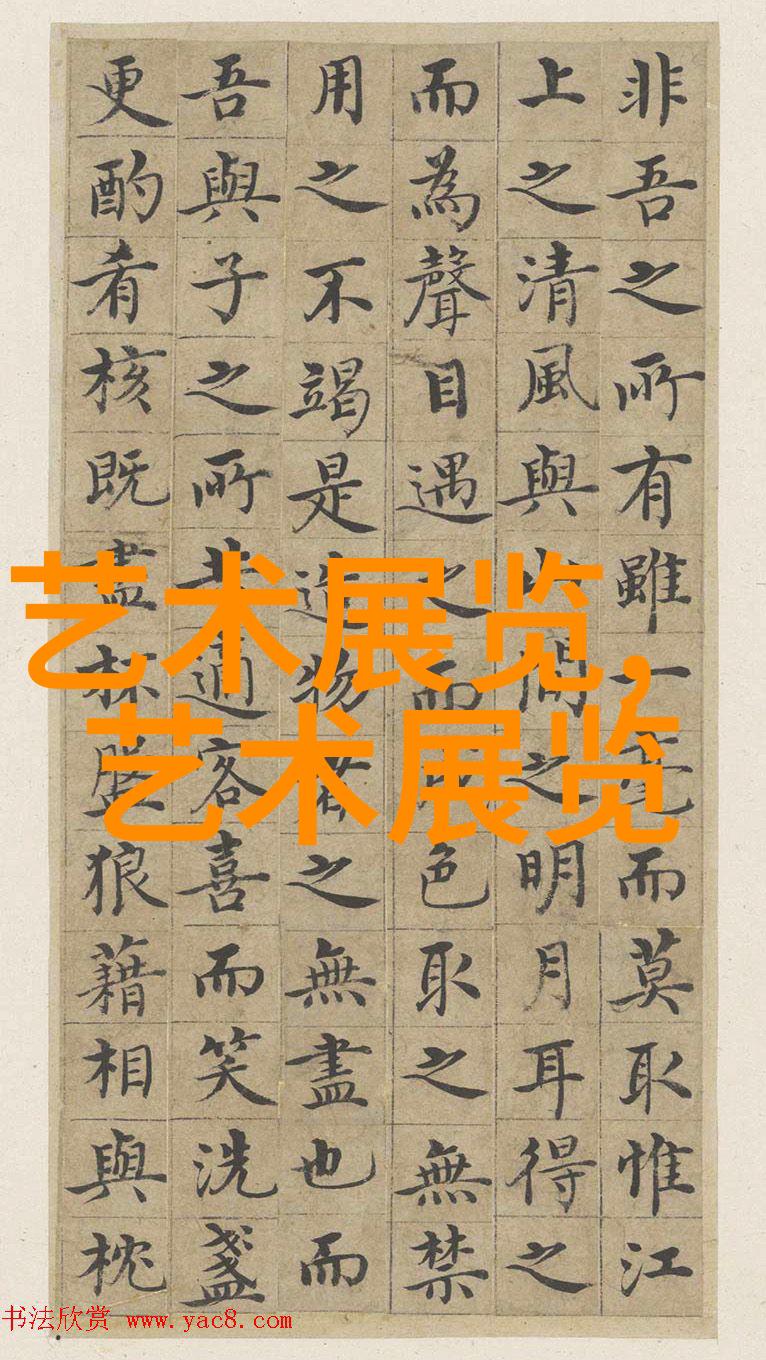 非吾之所有雖一毫而莫取惟江
上之清風與山間之明月耳得之
而為聲目遇之而色取之無禁
用之不竭是造物者之無盡也而
吾與子之所共適客喜而笑洗盞
更酌肴核既盡杯盤狼藉相與枕
艺术展览,
艺术展览
书法欣赏 www.yac8.com